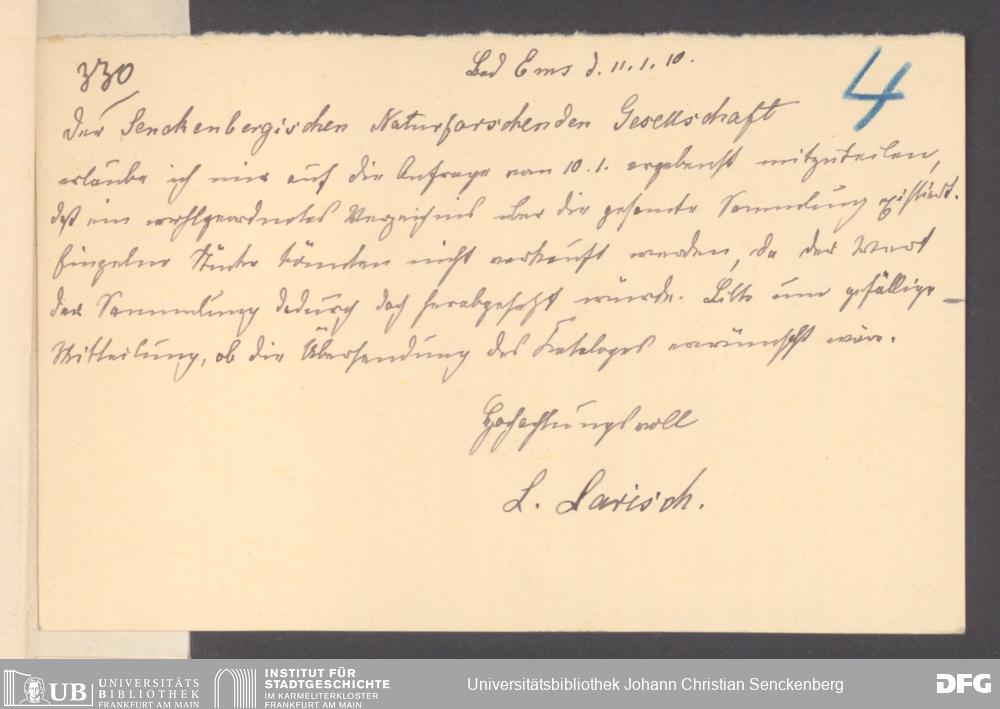 330
Bad Ems d. 11.1.10.
4
Der Senckenbergischen Naturforschenden Gesellschaft
erlaube ich mir auf die Anfrage vom 10.1. ergebenst mitzuteilen,
daß ein wohlgeordnetes Verzeichnis über die gesamte Sammlung existiert.
Einzelne Stücke könnten nicht verkauft werden, da der Wert
der Sammlung dadurch doch herabgesetzt würde. Bitte um gefällige
Mitteilung, ob die Übersendung des Kataloges erwünscht wäre.
Hochachtungsvoll
L. Larisch.
UB UNIVERSITÄTS
BIBLIOTHEK
FRANKFURT AM MAIN
INSTITUT FÜR
STADTGESCHICHTE
IM KARMELITERKLOSTER
FRANKFURT AM MAIN
Universitätsbibliothek Johann Christian Senckenberg
DFG